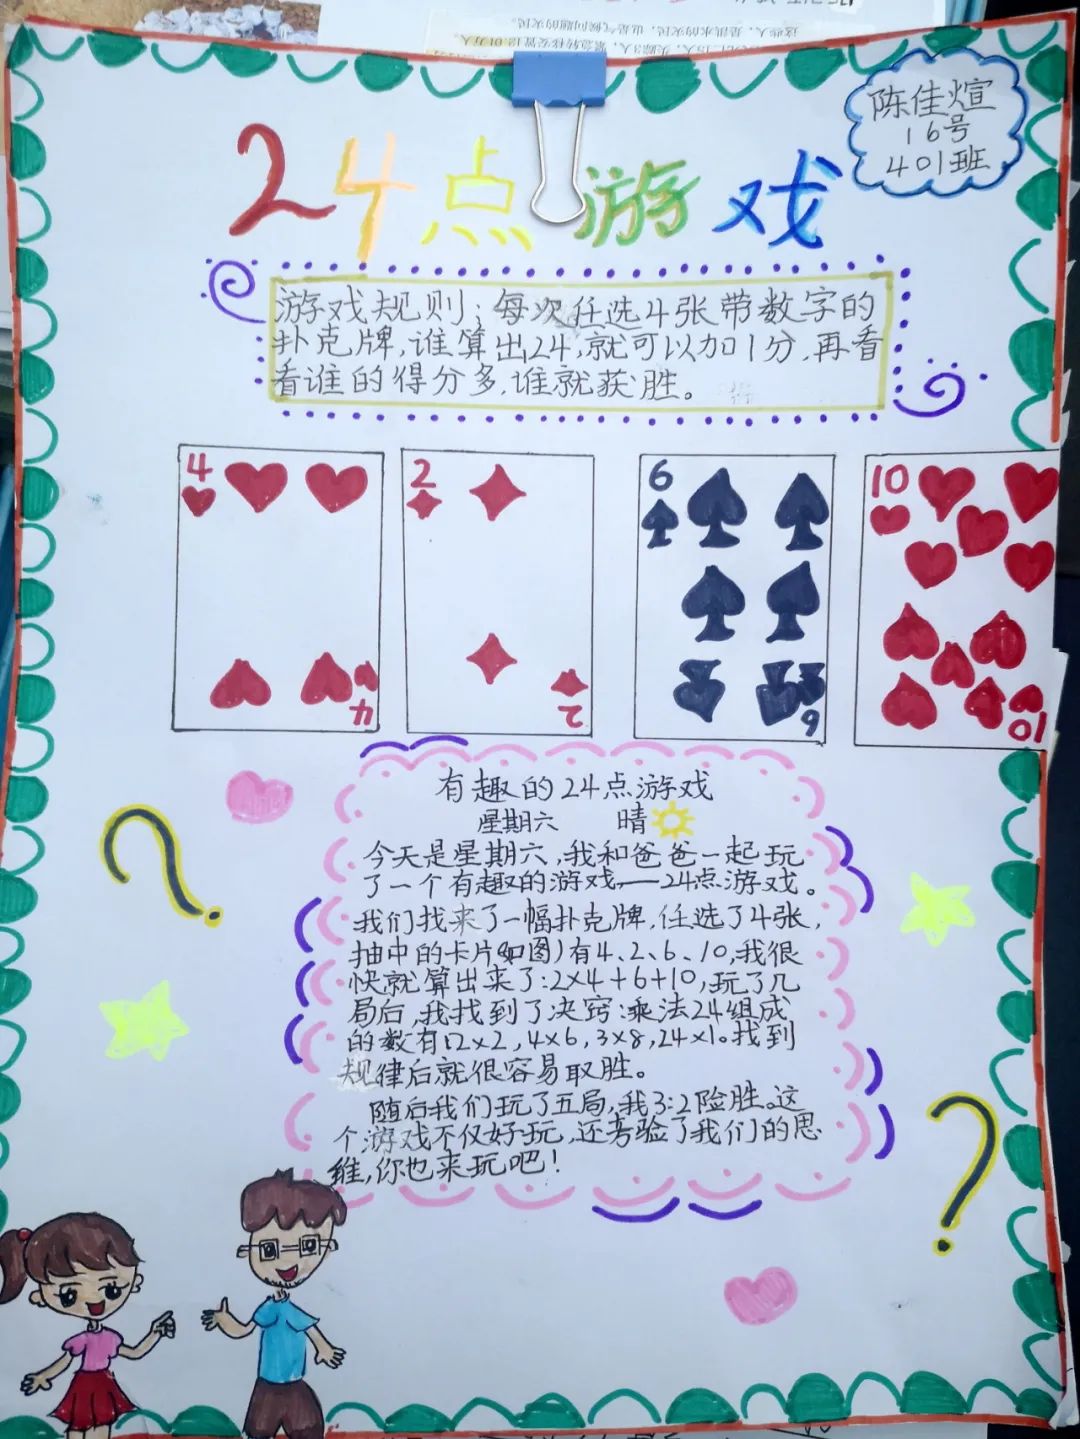 这些人，是洪水的灾民，也是气候问题的灾民。
陈佳煊
16号
401班
24点游戏
游戏规则：每次任选4张带数字的
扑克牌,谁算出24,就可以加1分,再看
看谁的得分多,谁就获胜。
4
2
6
10
4
2
6
10
有趣的24点游戏
星期六 晴
今天是星期六,我和爸爸一起玩
了一个有趣的游戏——24点游戏。
我们找来了一幅扑克牌,任选了4张,
抽中的卡片(如图)有4、2、6、10,我很
快就算出来了:2×4+6+10,玩了几
局后,我找到了决窍:乘法24组成
的数有12×2,4×6,3×8,24×1。找到
规律后就很容易取胜。
随后我们玩了五局,我3:2险胜。这
个游戏不仅好玩,还考验了我们的思
维,你也来玩吧!